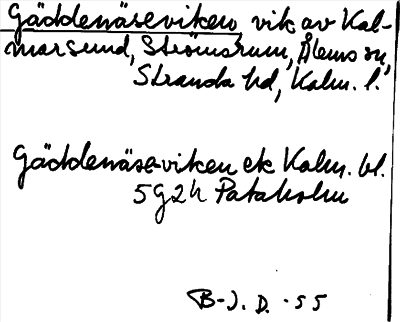 Gäddenäseviken, vik av Kal-
marsund, Strömsrum, Ålems sn,
Stranda hd, Kalm. l.
Gäddenäse-viken ek Kalm. bl.
5g2h Pataholm
B-J. D. -55